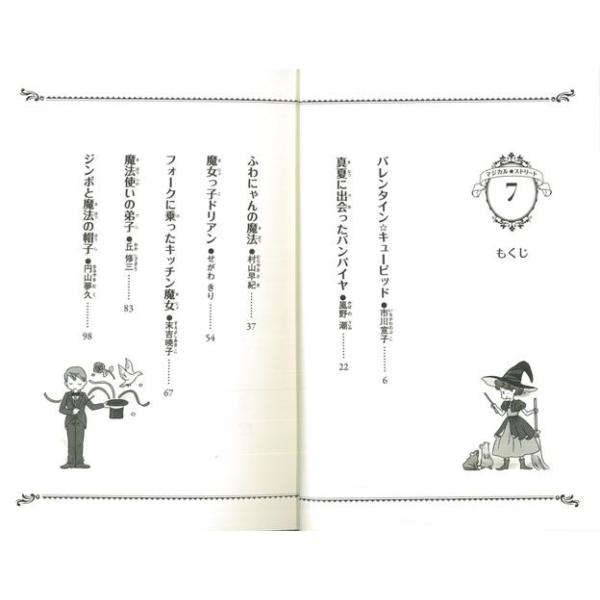 マジカル★ストリート
7
もくじ
バレンタイン☆キューピッド●市川宣子………6
真夏に出会ったバンパイヤ●風野 潮………22
ふわにゃんの魔法●村山早紀………37
魔女っ子ドリアン●せがわ きり………54
フォークに乗ったキッチン魔女●末吉暁子………67
魔法使いの弟子●丘 修三………83
ジンボと魔法の帽子●円山夢久………98